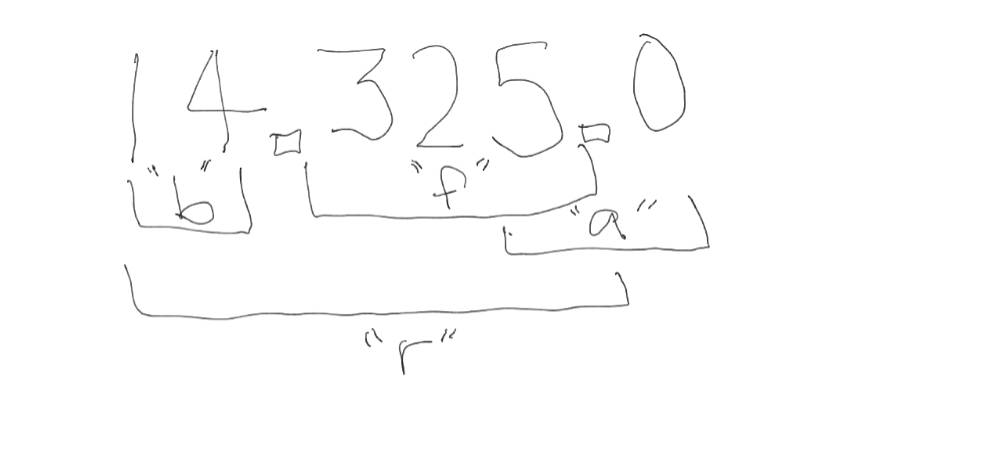 14.325.0
"b" "f"
"a"
"r"